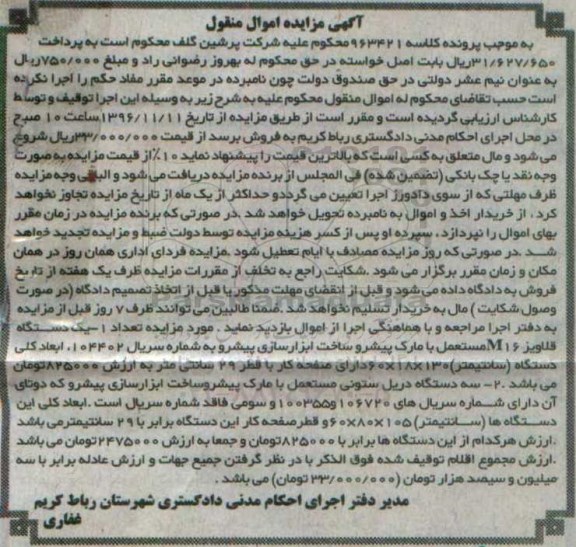 آگهی مزایده اموال منقول
به موجب پرونده کلاسه ۹۶۳۴۲۱محکوم علیه شرکت پرشین گلف محکوم است به پرداخت
۳۱/۶۲۷/۶۵۰ریال بابت اصل خواسته در حق محکوم له بهروز رضوانی راد و مبلغ ۷۵۰/۰۰۰ریال
به عنوان نیم عشر دولتی در حق صندوق دولت چون نامبرده در موعد مقرر مفاد حکم را اجرا نکرده
است حسب تقاضای محکوم له اموال منقول محکوم علیه به شرح زیر به وسیله این اجرا توقیف و توسط
کارشناس ارزیابی گردیده است و مقرر است از طریق مزایده از تاریخ ۱۳۹۶/۱۱/۱۱ساعت ۱۰ صبح
در محل اجرای احکام مدنی دادگستری رباط کریم به فروش برسد از قیمت ۳۳/۰۰۰/۰۰۰ریال شروع
می شود و مال متعلق به کسی است که بالاترین قیمت را پیشنهاد نماید ۱۰٪از قیمت مزایده به صورت
وجه نقد یا چک بانکی (تضمین شده) فی المجلس از برنده مزایده دریافت می شود و الباقی وجه مزایده
ظرف مهلتی که از سوی دادورز اجرا تعیین می گرددو حداکثر از یک ماه از تاریخ مزایده تجاوز نخواهد
کرد ، از خریدار اخذ و اموال به نامبرده تحویل خواهد شد .در صورتی که برنده مزایده در زمان مقرر
بهای اموال را نپردازد ، سپرده او پس از کسر هزینه مزایده توسط دولت ضبط و مزایده تجدید خواهد
شد .در صورتی که روز مزایده مصادف با ایام تعطیل شود .مزایده فردای اداری همان روز در همان
مکان و زمان مقرر برگزار می شود .شکایت راجع به تخلف از مقررات مزایده ظرف یک هفته از تاریخ
فروش به دادگاه داده می شود و قبل از انقضای مهلت مذکور یا قبل از اتخاذ تصمیم دادگاه (در صورت
وصول شکایت ) مال به خریدار تسلیم نخواهد شد .ضمنا طالبین می توانند ظرف ۷ روز قبل از مزایده
به دفتر اجرا مراجعه و با هماهنگی اجرا از اموال بازدید نمایند . مورد مزایده تعداد ۱-یک دستگاه
قلاویز M۱۶مستعمل با مارک پیشرو ساخت ابزارسازی پیشرو به شماره سریال ۱۰۴۴۰۲، ابعاد کلی
دستگاه (سانتیمتر)۱۳۰×۱۸×۶۰دارای صفحه کار با قطر ۲۹ سانتی متر به ارزش ۸۲۵۰۰۰تومان
می باشد .۲- سه دستگاه دریل ستونی مستعمل با مارک پیشروساخت ابزارسازی پیشرو که دوتای
آن دارای شماره سریال های ۱۰۶۷۲۰و۱۰۰۳۵۵ و سومی فاقد شماره سریال است .ابعاد کلی این
دستگاه ها (سانتیمتر)۱۰۵×۸۰×۶۰و قطرصفحه کار این دستگاه برابر با ۲۹ سانتیمترمی باشد
.ارزش هرکدام از این دستگاه ها برابر با ۸۲۵۰۰۰تومان و جمعا به ارزش ۲۴۷۵۰۰۰تومان می باشد
.ارزش مجموع اقلام توقیف شده فوق الذکر با در نظر گرفتن جمیع جهات و ارزش عادله برابر با سه
میلیون و سیصد هزار تومان (۳۳/۰۰۰/۰۰۰ تومان) می باشد .
مدیر دفتر اجرای احکام مدنی دادگستری شهرستان رباط کریم
غفاری